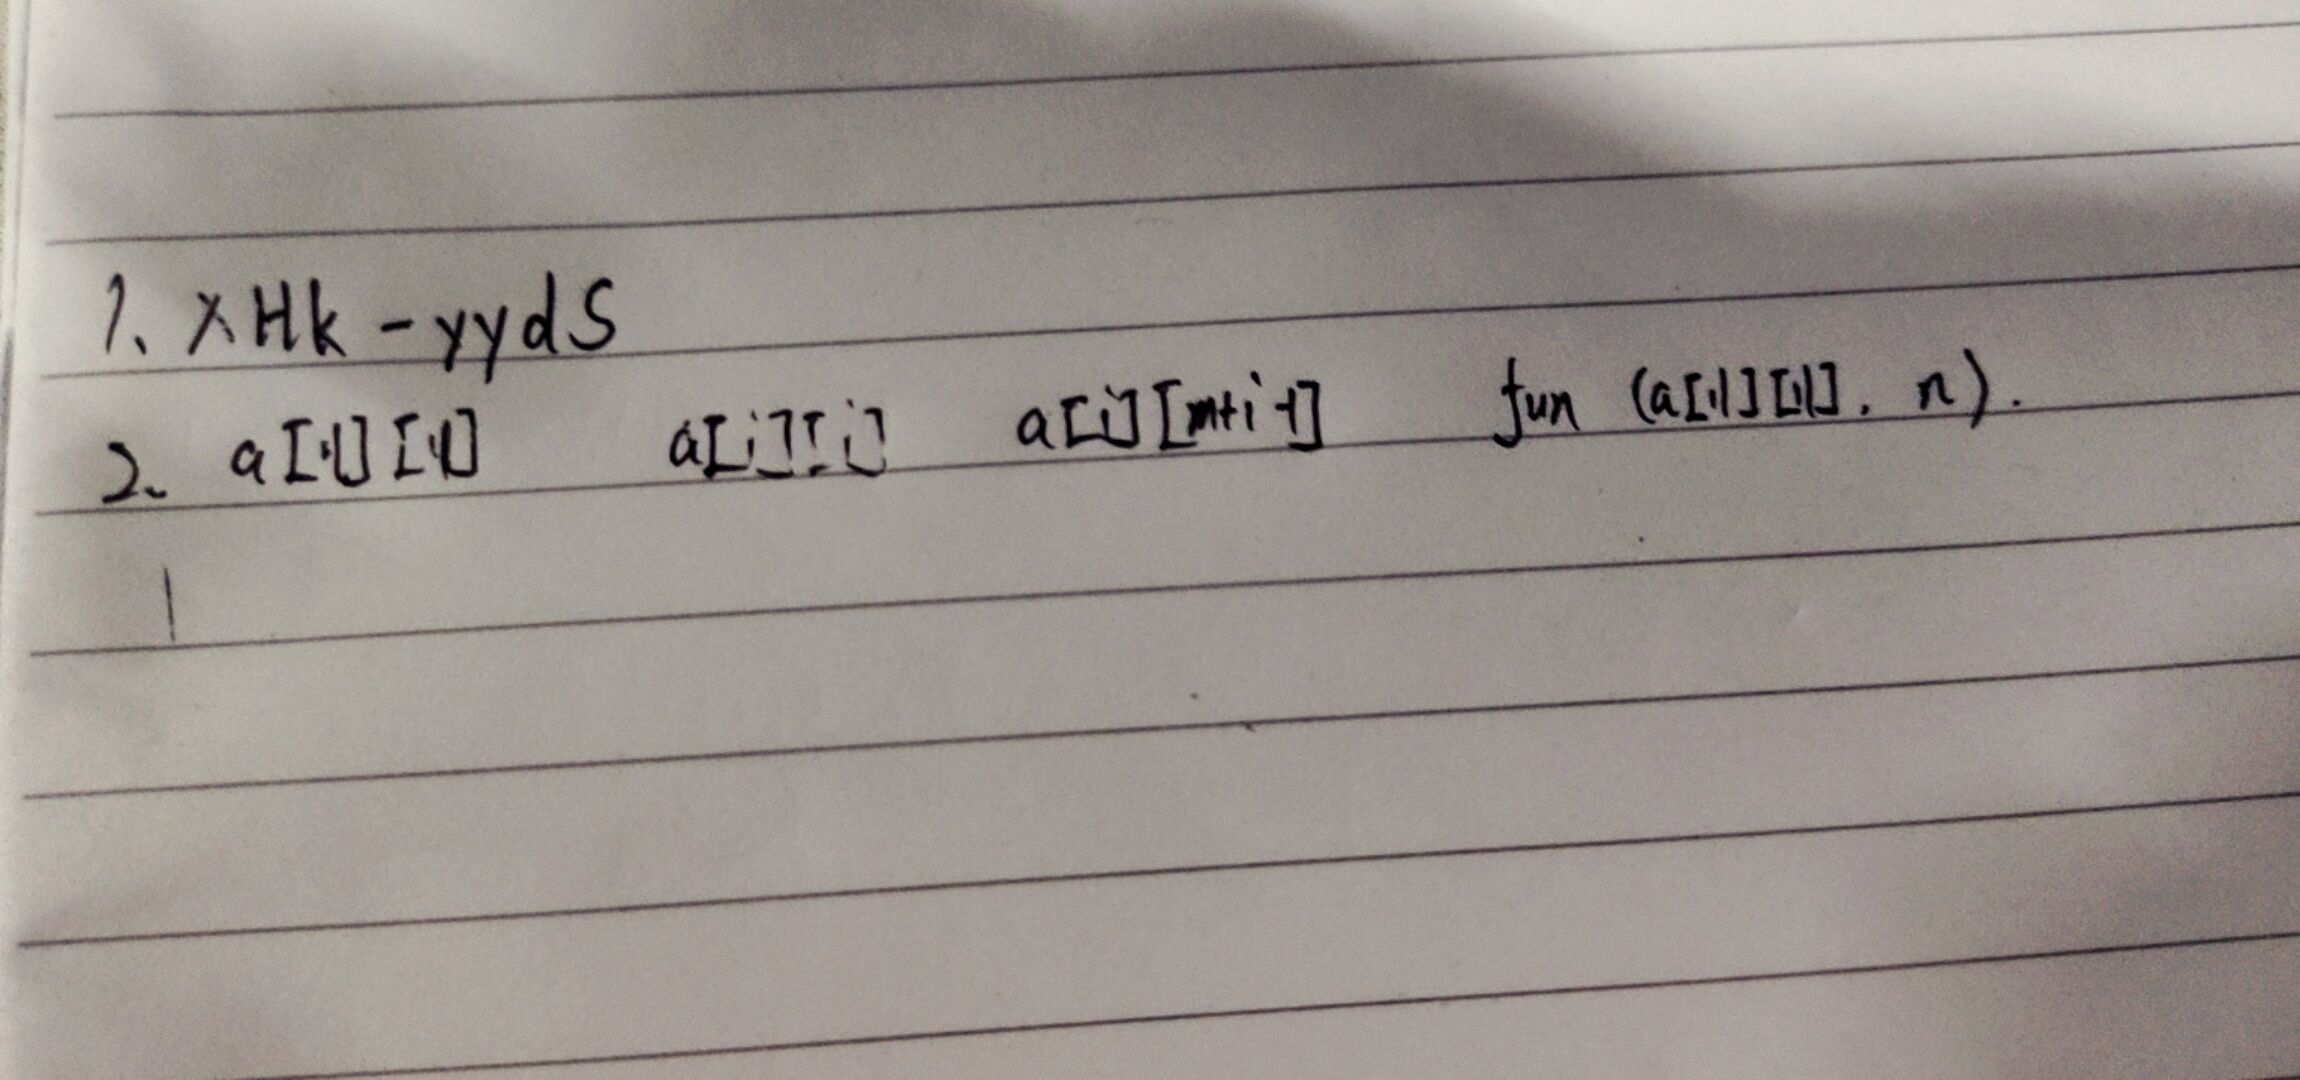 1. XHk-yydS
2. a[1][1] a[i][i] a[i][m+i-1] fun (a[1][1], n).